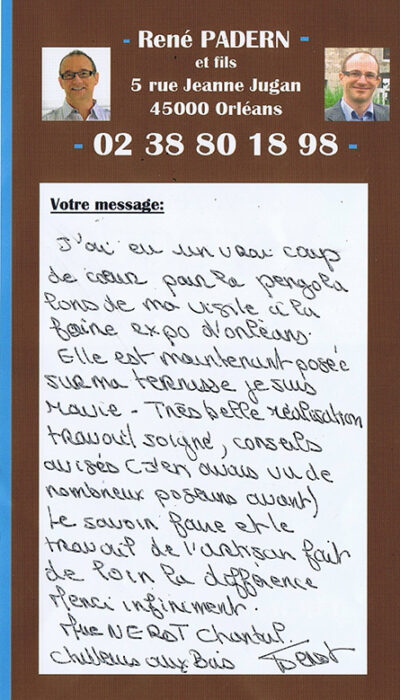 - René PADERN -
et fils
5 rue Jeanne Jugan
45000 Orléans
- 02 38 80 18 98 -
Votre message:
J'ai eu un vrai coup
de cœur pour la pergola
lors de ma visite à la
foire expo d'orléans.
Elle est maintenant posée
sur ma terrasse je suis
ravie - Très belle réalisation
travail soigné, conseils
avisés (j'en avais vu de
nombreux poseurs avant)
Le savoir faire et le
travail de l'artisan fait
de loin la différence
Merci infiniment.
NEROT Chantal.
Chilleurs aux Bois Nerot